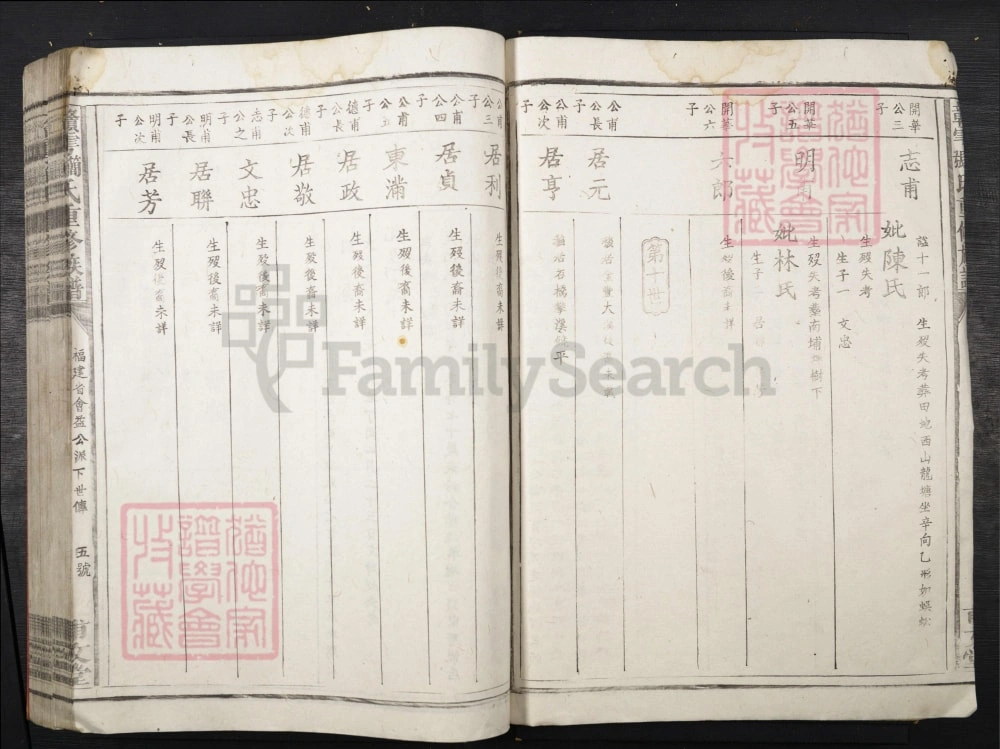 開華
公三
子
志甫
諡十一郎 生歿失考葬田地西山龍塘坐辛向乙形如蜈蚣
妣陳氏
生歿失考
生子一 文忠
開華
公五
子
明甫
生歿失考葬南埔 樹下
妣林氏
生子二
開華
公六
子
六郎
生歿後裔未詳
第十世
公甫
公長
子
居元
公甫
公次
子
居亨
公甫
公三
子
居利
生歿後裔未詳
公甫
公四
子
居貞
生歿後裔未詳
公甫
公五
子
東滿
生歿後裔未詳
德甫
公長
子
居政
生歿後裔未詳
德甫
公次
子
居敬
生歿後裔未詳
志甫
公之
子
文忠
生歿後裔未詳
明甫
公長
子
居聯
生歿後裔未詳
明甫
公次
子
居芳
生歿後裔未詳
氏重修族譜
福建省會益公派下世傳
五號
FamilySearch
猶他家
譜學會
收藏
猶他家
譜學會
收藏